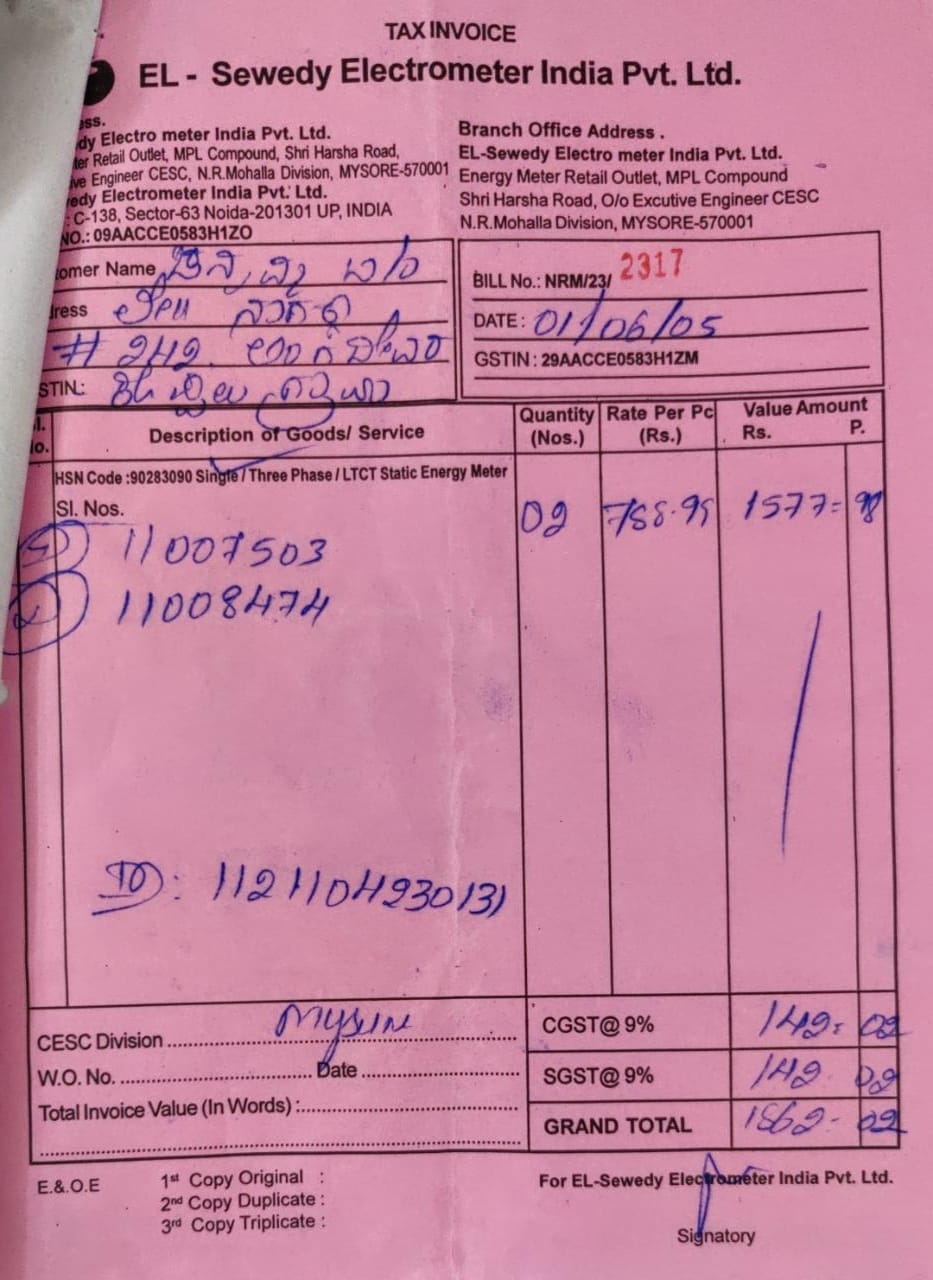 TAX INVOICE
EL - Sewedy Electrometer India Pvt. Ltd.
ess.
dy Electro meter India Pvt. Ltd.
ter Retail Outlet, MPL Compound, Shri Harsha Road,
ive Engineer CESC, N.R.Mohalla Division, MYSORE-570001
edy Electrometer India Pvt. Ltd.
: C-138, Sector-63 Noida-201301 UP, INDIA
NO.: 09AACCE0583H1ZO
Branch Office Address .
EL-Sewedy Electro meter India Pvt. Ltd.
Energy Meter Retail Outlet, MPL Compound
Shri Harsha Road, O/o Excutive Engineer CESC
N.R.Mohalla Division, MYSORE-570001
omer Name
ress
# 242.
STIN.:
BILL No.: NRM/23/ 2317
DATE : 01/06/05
GSTIN : 29AACCE0583H1ZM
l. No. Description of Goods/ Service Quantity (Nos.) Rate Per Pc (Rs.) Value Amount Rs. P.
HSN Code :90283090 Single / Three Phase / LTCT Static Energy Meter
Sl. Nos. 02 788.99 1577= 98
11007503
11008474
ID : 1121104930131
CESC Division Mysore CGST@ 9% 142= 02
W.O. No. Date SGST@ 9% 142 02
Total Invoice Value (In Words) : GRAND TOTAL 1862- 02
E.&.O.E
1st Copy Original :
2nd Copy Duplicate :
3rd Copy Triplicate :
For EL-Sewedy Electrometer India Pvt. Ltd.
Signatory